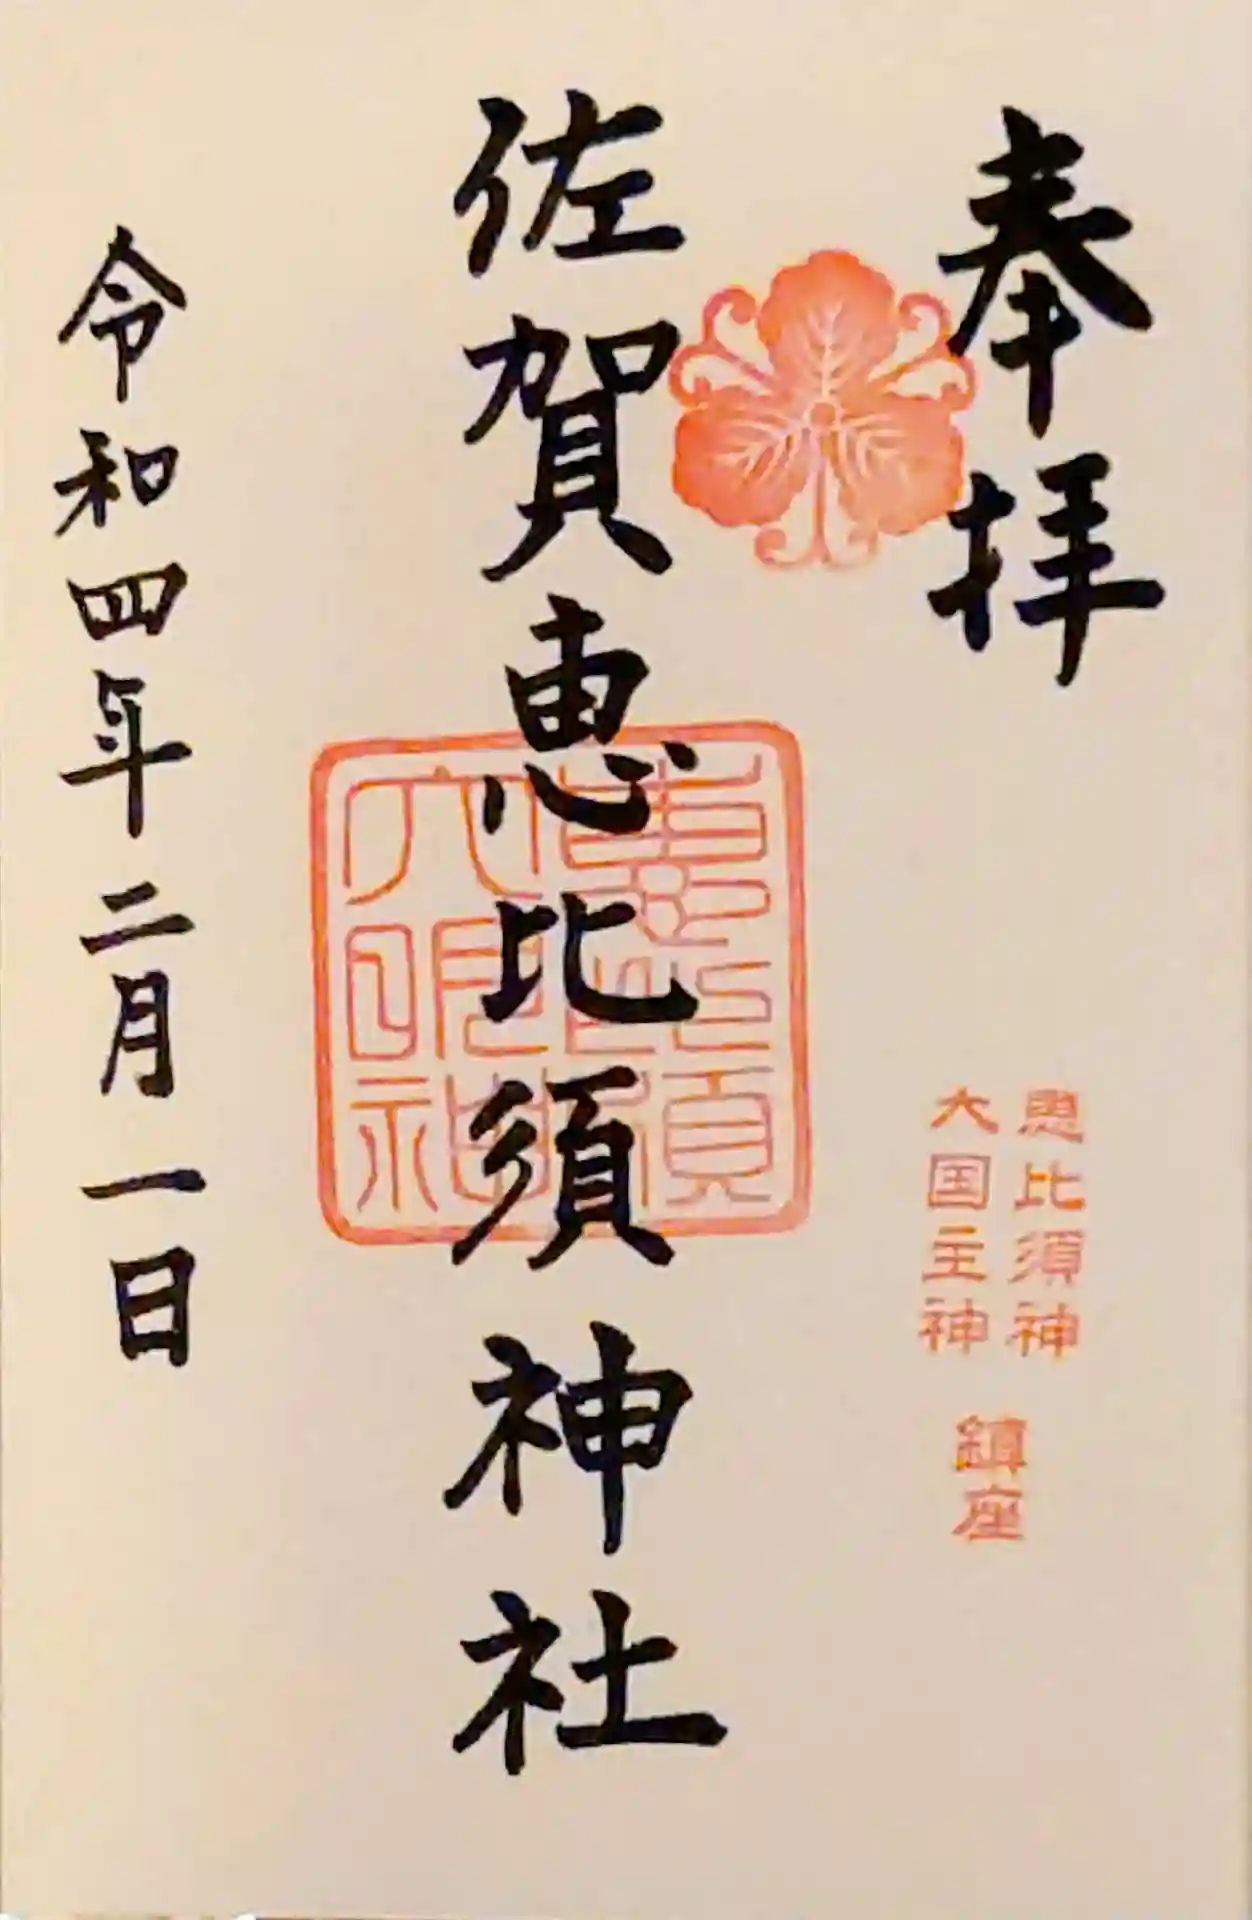 奉拝
恵比須神
大国主神
鎮座
佐賀恵比須神社
恵比須
大明神
令和四年二月一日